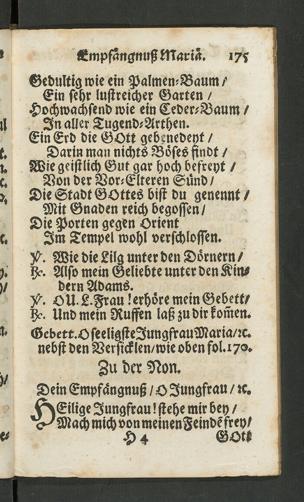 Empfängnuß Mariä. 175
Gedultig wie ein Palmen-Baum /
Ein sehr lustreicher Garten /
Hochwachsend wie ein Ceder-Baum /
In aller Tugend-Arthen.
Ein Erd die GOtt gebenedeyt /
Darin man nichts Böses findt /
Wie geistlich Gut gar hoch befreyt /
Von der Vor-Elteren Sünd /
Die Stadt GOttes bist du genennt /
Mit Gnaden reich begossen /
Die Porten gegen Orient
Im Tempel wohl verschlossen.
℣. Wie die Lilg unter den Dörnern /
℟. Also mein Geliebte unter den Kin-
dern Adams.
℣. O U. L. Frau! erhöre mein Gebett /
℟. Und mein Ruffen laß zu dir kom̃en.
Gebett. O seeligste Jungfrau Maria / ꝛc.
nebst den Versicklen / wie oben fol. 170.
Zu der Non.
Dein Empfängnuß / O Jungfrau / ꝛc.
HEilige Jungfrau! stehe mir bey /
Mach mich von meinen Feindẽ frey /
H 4 GOtt